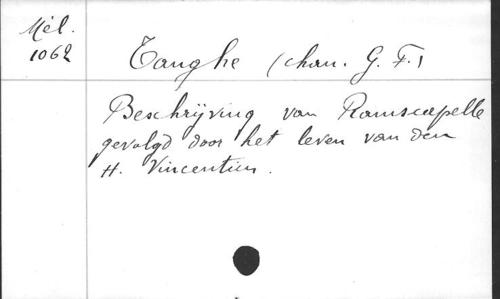 Mél.
1062
Tanghe (chan. G. F.)
Beschrijving van Ramscapelle
gevolgd door het leven van den
H. Vincentius.